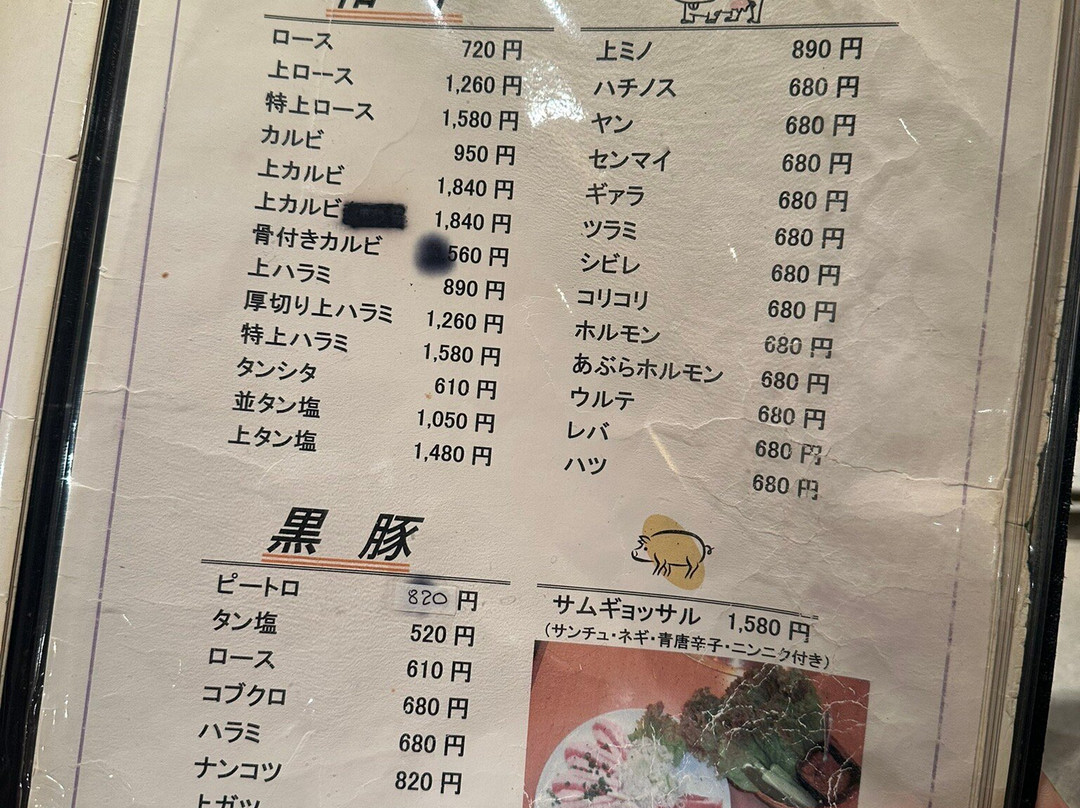 ロース 720 円
上ロース 1,260 円
特上ロース 1,580 円
カルビ 950 円
上カルビ 1,840 円
上カルビ 1,840 円
骨付きカルビ 560 円
上ハラミ 890 円
厚切り上ハラミ 1,260 円
特上ハラミ 1,580 円
タンシタ 610 円
並タン塩 1,050 円
上タン塩 1,480 円
上ミノ 890 円
ハチノス 680 円
ヤン 680 円
センマイ 680 円
ギァラ 680 円
ツラミ 680 円
シビレ 680 円
コリコリ 680 円
ホルモン 680 円
あぶらホルモン 680 円
ウルテ 680 円
レバ 680 円
ハツ 680 円
黒 豚
ピートロ 820 円
タン塩 520 円
ロース 610 円
コブクロ 680 円
ハラミ 680 円
ナンコツ 820 円
上ガツ
サムギョッサル 1,580 円
(サンチュ・ネギ・青唐辛子・ニンニク付き)